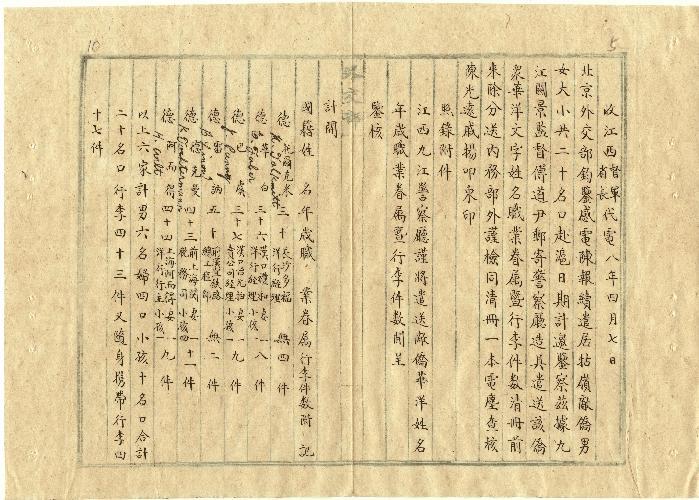 收江西督軍省長代電 八年四月七日
北京外交部鈞鑒感電陳報續遣居牯嶺敵僑男
女大小共二十名口赴滬日期計邀鑒察茲據九
江關景監督傳道尹郵寄警察廳造具遣送該僑
眾華洋文字姓名職業眷屬暨行李件數清冊前
來除分送內務部外謹檢同清冊一本電塵查核
陳光遠戚揚叩東印
照錄附件
江西九江警察廳謹將遣送敵僑華洋姓名
年歲職業眷屬暨行李件數開呈
鑒核
計開
國籍姓 名年歲職 業眷屬行李件數附記
德 三十 長沙多福洋行經理 無 四 件
德 三十六 洋行經理 妻 小孩 一 八 件
德 巴 虞 三十七 賣公司經理 妻 小孩一 九 件
德 雷 納 五十 總工程師 無 二 件
德 曼 四十三 前上海 稅務司 妻 小孩四 十一 件
德 阿而得 四十四 上海阿而得洋行行主 妻 小孩一 九 件
以上六家計男六名婦四口小孩十名口合計
二十名口行李四十三件又隨身攜帶行李四
十七件
10
5